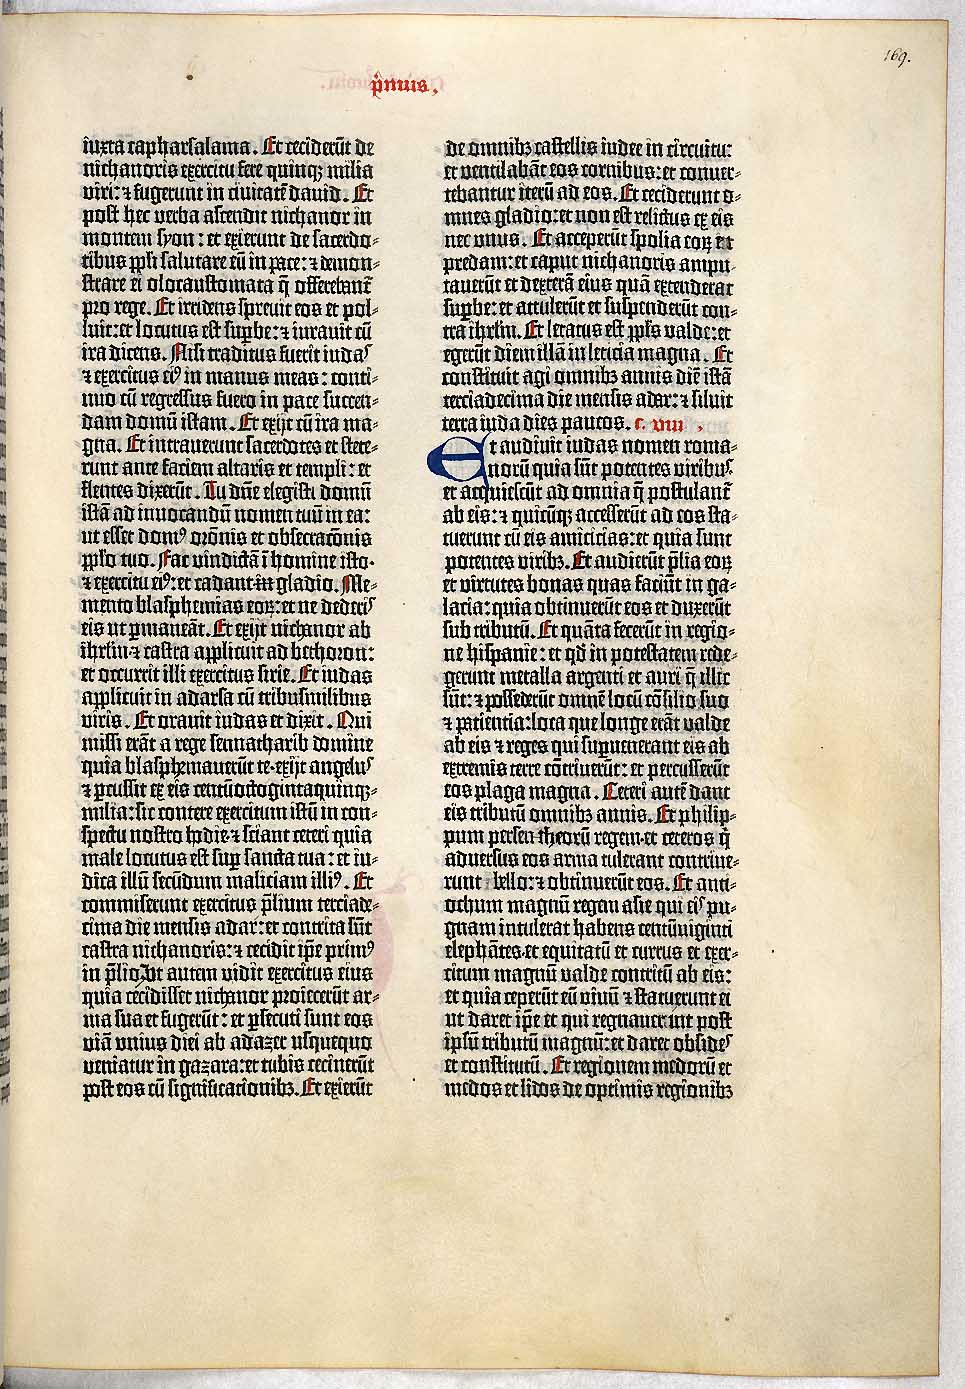 169.
p̄muis,
iuxta capharsalama. Et cecideru̅t de
nichanoris exercitu fere quinqꝫ milia
viri: ⁊ fugerunt in ciuitate̅ dauid. Et
post hec verba ascendit nichanor in
montem syon: et exierunt de sacerdo⸗
tibus ppl̅i salutare eu̅ in pace: ⁊ demon⸗
strare ei olocaustomata q̅ offerebant̅
pro rege. Et irridens spreuit eos et pol⸗
luit: et locutus est sup̲be: ⁊ iurauit cu̅
ira dicens. Nisi traditus fuerit iudas
⁊ exercitus ei⁹ in manus meas: conti⸗
nuo cu̅ regressus fuero in pace succen⸗
dam domu̅ istam. Et exijt cu̅ ira ma⸗
gna. Et intrauerunt sacerdotes et stete⸗
runt ante faciem altaris et templi: et
flentes dixeru̅t. Tu dn̅e elegisti domu̅
ista̅ ad inuocandu̅ nomen tuu̅ in ea:
ut esset dom⁹ oro̅nis et obsecrato̅nis
pp̅lo tuo. Fac vindicta̅ i̅ homine isto·
⁊ exercitu ei⁹: et cadant in gladio. Me⸗
mento blasphemias eoꝝ: et ne dederis
eis ut p̲manea̅t. Et exijt nichanor ab
ihrl̅m·⁊ castra applicuit ad bethoron:
et occurrit illi exercitus sirie. Et iudas
applicuit in adarsa cu̅ tribusmilibus
viris. Et orauit iudas et dixit. Qui
missi era̅t a rege sennacharib domine
quia blasphemaueru̅t te·exijt angelus
⁊ p̲cussit ex eis centu̅octogintaquinqꝫ⸗
milia: sic contere exercitum istu̅ in con⸗
spectu nostro hodie·⁊ sciant ceteri quia
male locutus est sup̲ sancta tua: et iu⸗
dica illu̅ secu̅dum maliciam illi⁹. Et
commiserunt exercitus p̅lium terciade⸗
cima die mensis adar: et contrita su̅t
castra nichanoris: ⁊ cecidit ip̅e prim⁹
in p̅lio. Ut autem vidit exercitus eius
quia cecidisset nichanor proieceru̅t ar⸗
ma sua et fugeru̅t: et p̲secuti sunt eos
via̅ vnius diei ab adazer usquequo
veniatur in gazara: et tubis cecineru̅t
post eos cu̅ significationibꝫ. Et exieru̅t
de omnibꝫ castellis iudee in circuitu:
et ventilaba̅t eos cornibus: et conuer⸗
tebantur iteru̅ ad eos. Et ceciderunt o⸗
mnes gladio: et non est relictus ex eis
nec vnus. Et acceperu̅t spolia eoꝝ et
predam: et caput nichanoris ampu⸗
taueru̅t et dextera̅ eius qua̅ extenderat
sup̲be: et attuleru̅t et suspenderu̅t con⸗
tra ihrl̅m. Et letatus est ppl̅s valde: et
egeru̅t diem illa̅ in leticia magna. Et
constituit agi omnibꝫ annis die̅ ista̅
terciadecima die mensis adar: ⁊ siluit
terra iuda dies paucos. c. viii.
Et audiuit iudas nomen roma⸗
noru̅ quia su̅t potentes viribus
et acquiescu̅t ad omnia q̅ postulant̅
ab eis: ⁊ quicu̅qꝫ accesseru̅t ad eos sta⸗
tuerunt cu̅ eis amicicias: et quia sunt
potentes viribꝫ. Et audieru̅t p̅lia eoꝝ
et virtutes bonas quas faciu̅t in ga⸗
lacia: quia obtinueru̅t eos et duxeru̅t
sub tributu̅. Et qua̅ta fecerunt in regio⸗
ne hispanie: et qd̅ in potestatem rede⸗
gerunt metalla argenti et auri q̅ illic
su̅t: ⁊ possederu̅t omne̅ locu̅ co̅silio suo
⁊ patientia: loca que longe era̅t valde
ab eis ⁊ reges qui sup̲uenerant eis ab
extremis terre co̅triueru̅t: et percusseru̅t
eos plaga magna. Ceteri aute̅ dant
eis tributu̅ omnibꝫ annis. Et philip⸗
pum persen·theoru̅ regem·et ceteros q̇
aduersus eos arma tulerant contriue⸗
runt bello: ⁊ obtinueru̅t eos. Et anti⸗
ochum magnu̅ regem asie qui eis pu⸗
gnam intulerat habens centu̅viginti
elepha̅tes·et equitatu̅ et currus et exer⸗
citum magnu̅ valde contritu̅ ab eis:
et quia ceperu̅t eu̅ viuu̅ ⁊ statuerunt ei
ut daret ip̅e et qui regnauerunt post
ipsu̅ tributu̅ magnu̅: et daret obsides
et constitutu̅. Et regionem medoru̅ et
medos et lidos de optimis regionibꝫ